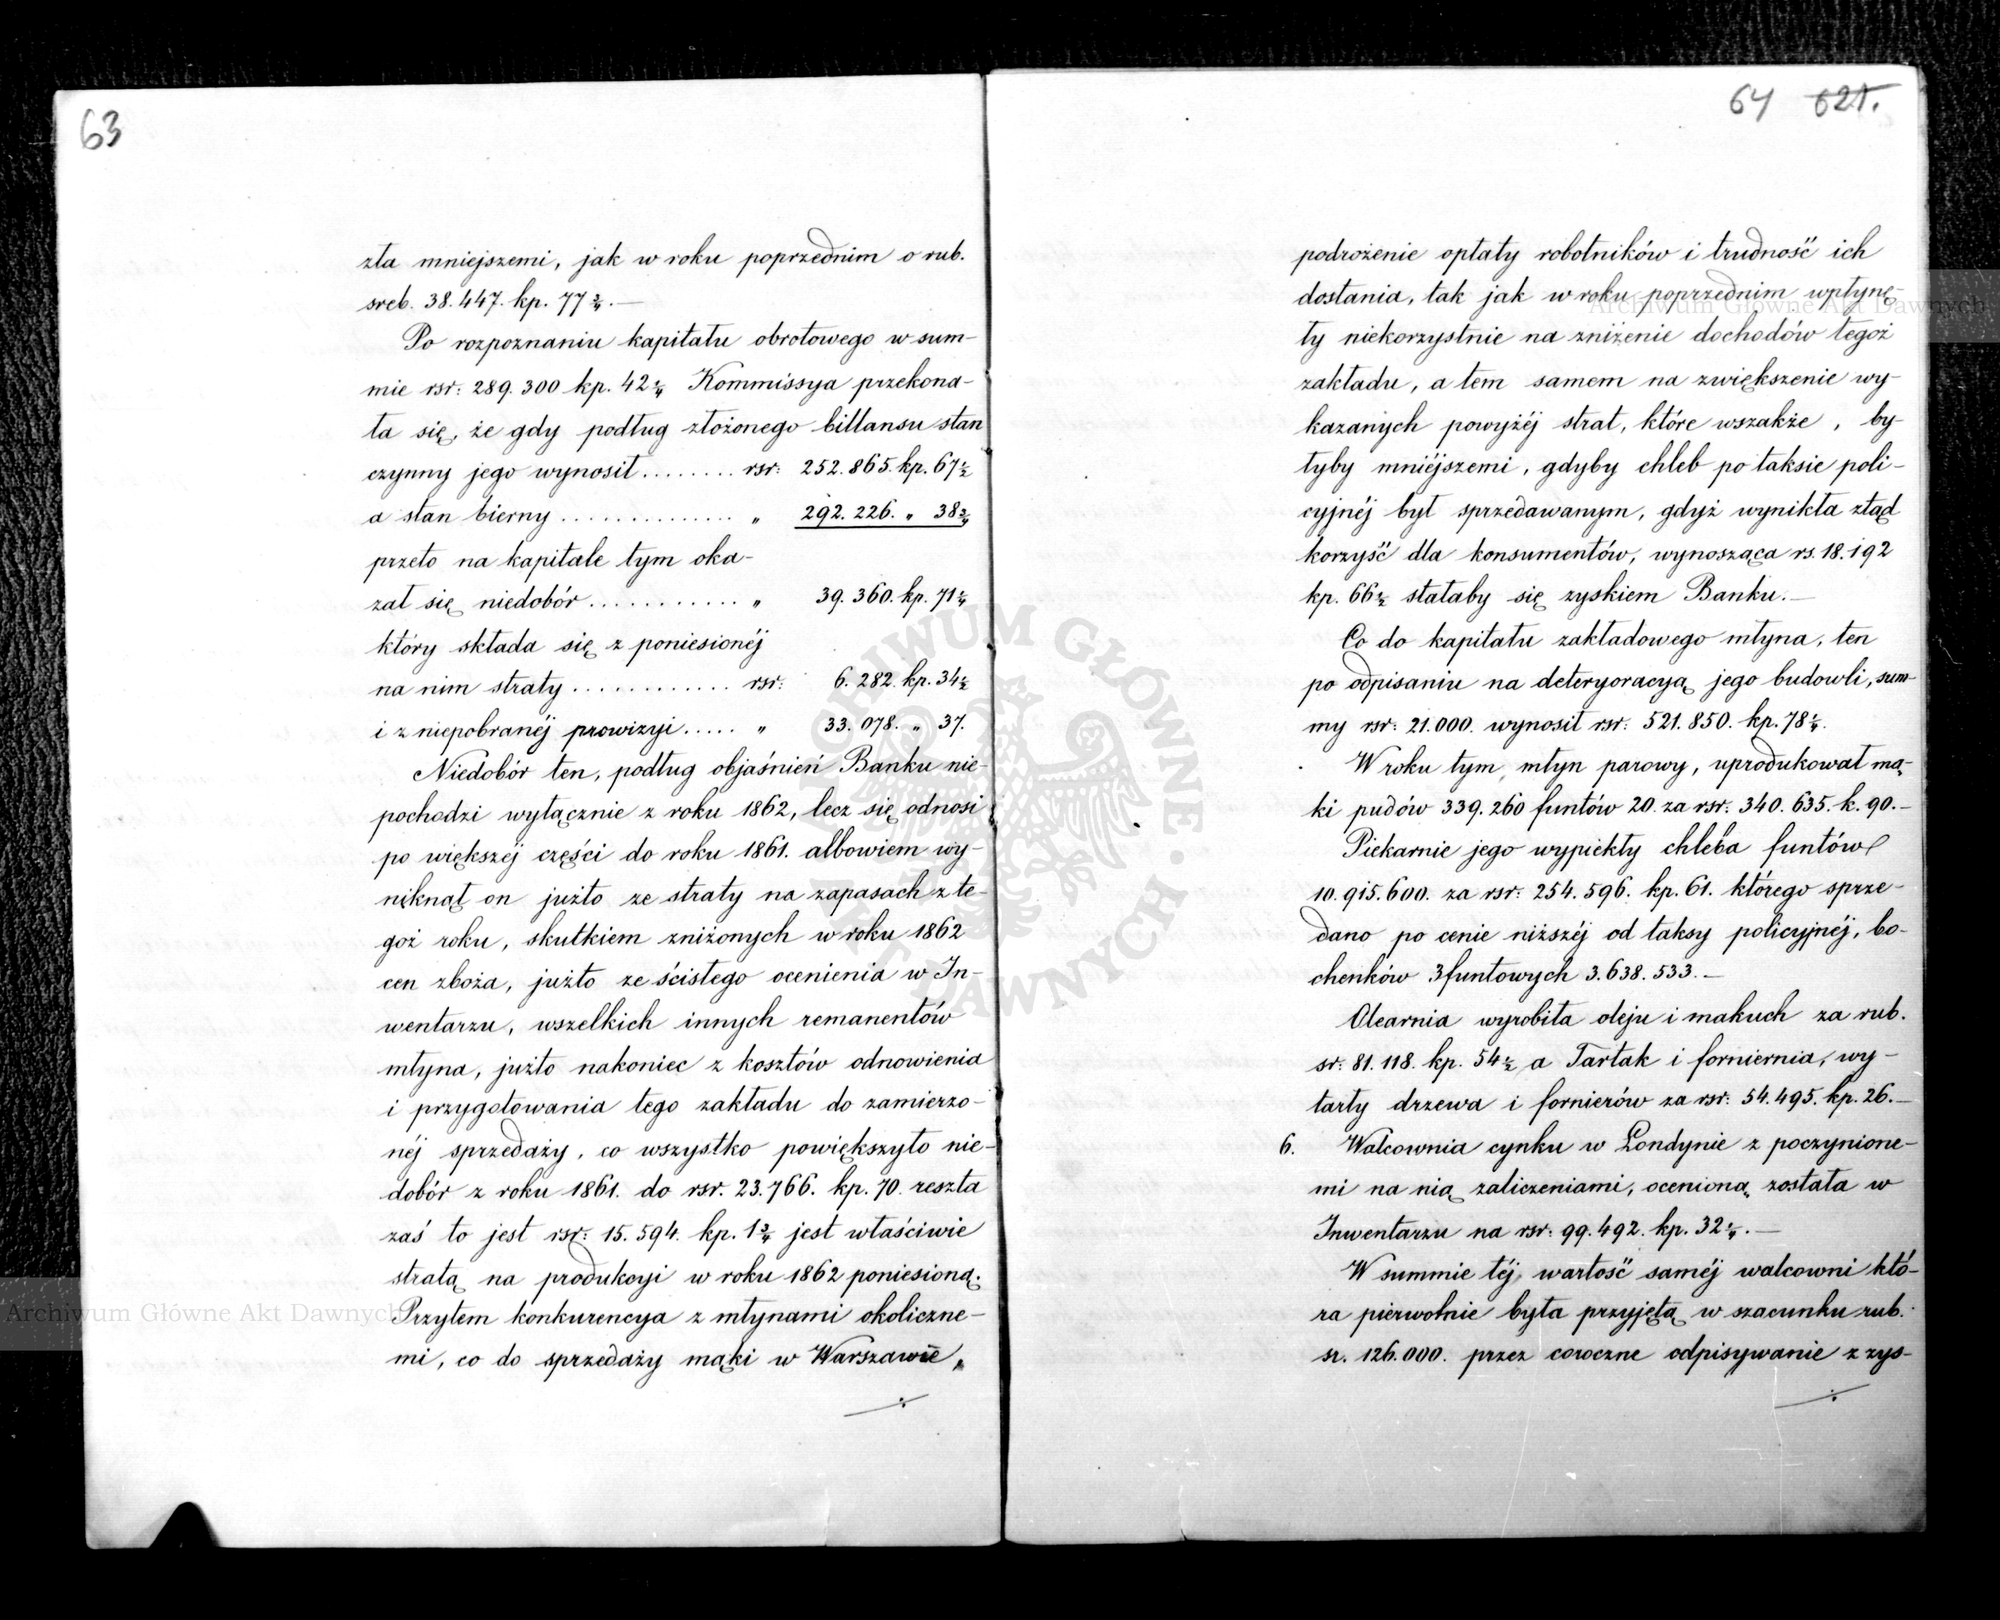 63
zła mniejszemi, jak w roku poprzednim o rub.
sreb. 38.447. kp. 77¾.—
Po rozpoznaniu kapitału obrotowego w sum-
mie rsr: 289.300 kp. 42¼ Kommissya przekona-
ła się, że gdy podług złożonego billansu stan
czynny jego wynosił........ rsr: 252.865. kp. 67½
a stan bierny ............... „ 292.226. „ 38¾
przeto na kapitale tym oka-
zał się niedobór............ „ 39.360. kp. 71¼
który składa się z poniesionéj
na nim straty............. rsr: 6.282. kp. 34½
i z niepobranéj prowizyi..... „ 33.078. „ 37.
Niedobór ten, podług objaśnień Banku nie-
pochodzi wyłącznie z roku 1862, lecz się odnosi
po większéj części do roku 1861. albowiem wy-
niknął on jużto ze straty na zapasach z te-
goż roku, skutkiem zniżonych w roku 1862
cen zboża, jużto ze ścisłego ocenienia w In-
wentarzu, wszelkich innych remanentów
młyna, jużto nakoniec z kosztów odnowienia
i przygotowania tego zakładu do zamierzo-
néj sprzedaży, co wszystko powiększyło nie-
dobór z roku 1861. do rsr. 23.766. kp. 70. reszta
zaś to jest rsr: 15.594. kp. 1¾ jest właściwie
stratą na produkcyi w roku 1862 poniesioną.
Przytem konkurencya z młynami okoliczne-
mi, co do sprzedaży mąki w Warszawie „
64 621.
podrożenie opłaty robotników i trudność ich
dostania, tak jak w roku poprzednim wpłynę-
ły niekorzystnie na zniżenie dochodów tegoż
zakładu, a tem samem na zwiększenie wy-
kazanych powyżéj strat, które wszakże, by-
łyby mniéjszemi, gdyby chleb po taksie poli-
cyjnéj był sprzedawanym, gdyż wynikła ztąd
korzyść dla konsumentów, wynosząca rs. 18.192
kp. 66½ stałaby się zyskiem Banku.—
Co do kapitału zakładowego młyna, ten
po odpisaniu na deteryoracyą jego budowli, sum-
my rsr: 21.000. wynosił rsr: 521.850. kp. 78¼.
W roku tym, młyn parowy, uprodukował mą-
ki pudów 339.260 funtów 20. za rsr: 340.635. k. 90.—
Piekarnie jego wypiekły chleba funtów
10.915.600. za rsr: 254.596. kp. 61. którego sprze-
dano po cenie niższéj od taksy policyjnéj, bo-
chenków 3funtowych 3.638.533.—
Olearnia wyrobiła oleju i makuch za rub.
sr: 81.118. kp. 54½ a Tartak i forniernia, wy-
tarły drzewa i fornierów za rsr: 54.495. kp. 26.—
6. Walcownia cynku w Londynie z poczynione-
mi na nią zaliczeniami, ocenioną została w
Inwentarzu na rsr: 99.492. kp. 32¼.—
W summie téj, wartość saméj walcowni któ-
ra pierwotnie była przyjętą w szacunku rub.
sr. 126.000. przez coroczne odpisywanie z zys-
Archiwum Główne Akt Dawnych
Archiwum Główne Akt Dawnych
ARCHIWUM GŁÓWNE AKT DAWNYCH